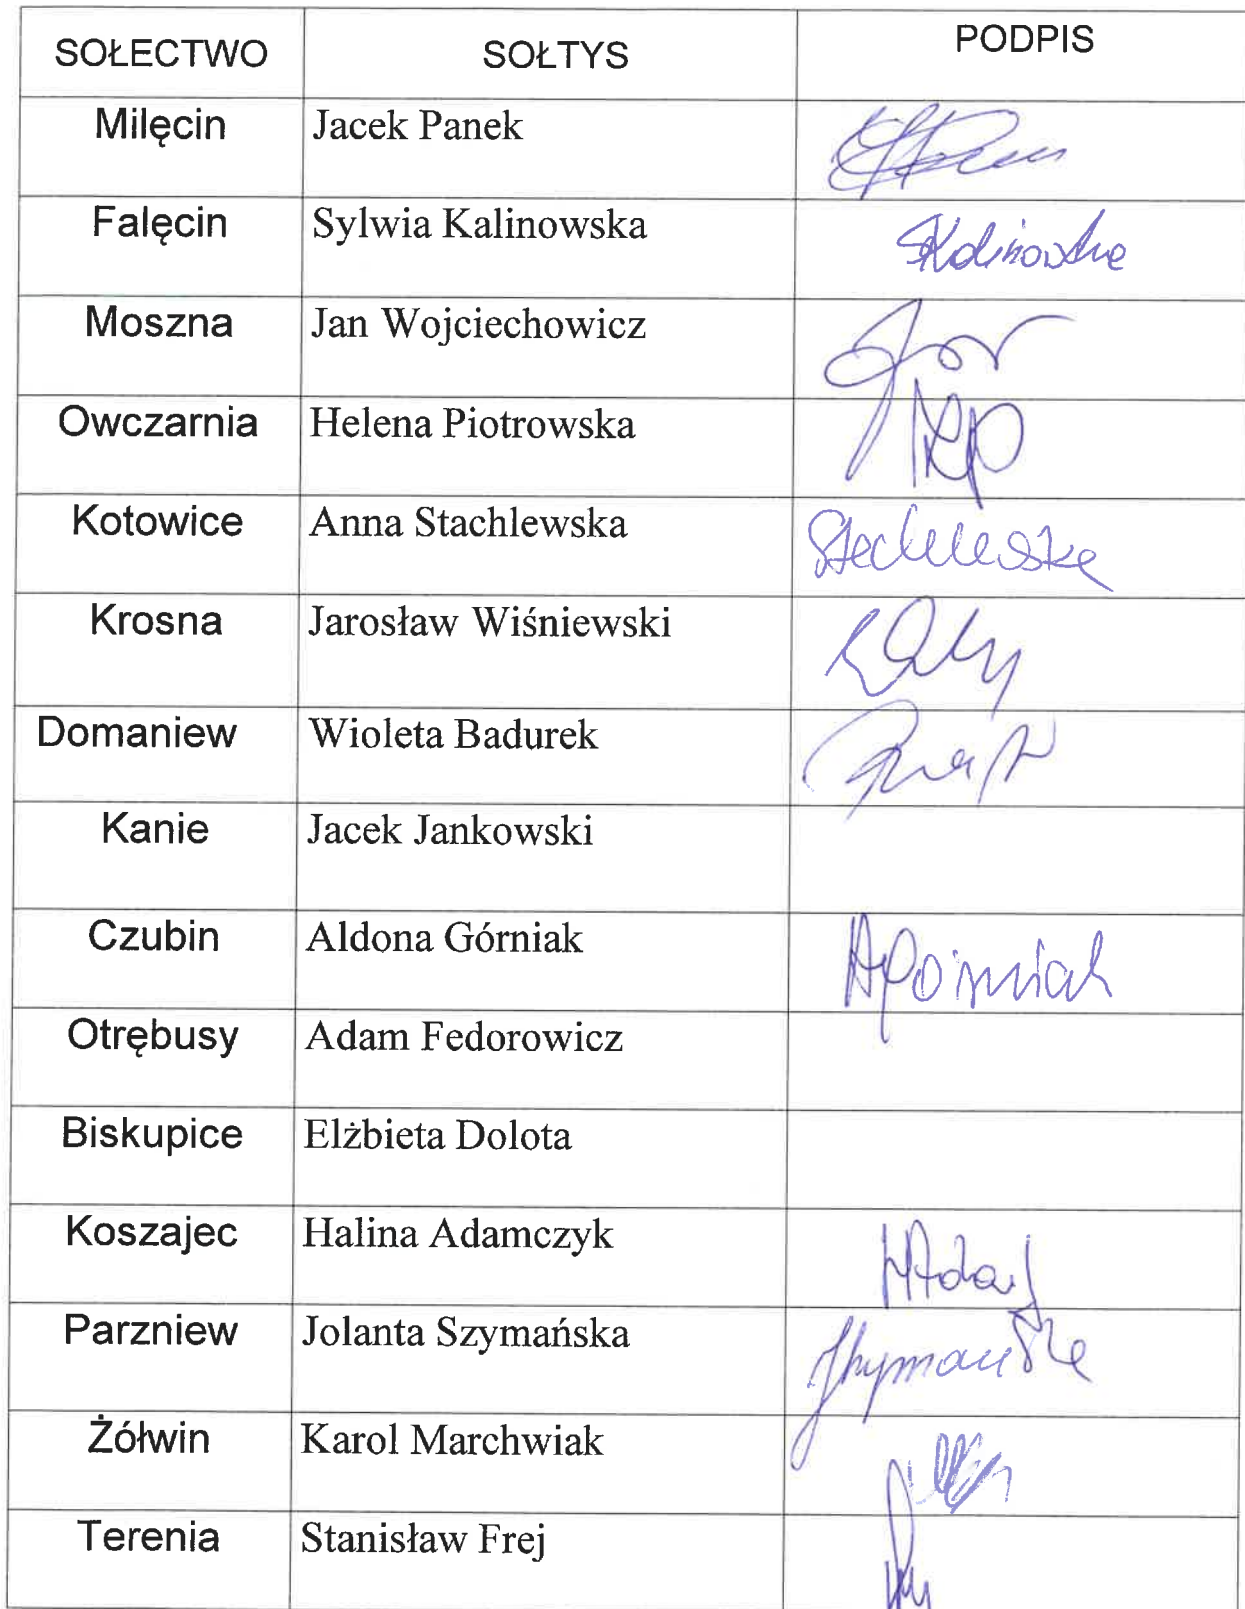 SOŁECTWO SOŁTYS PODPIS
Milęcin Jacek Panek
Falęcin Sylwia Kalinowska SKalinowska
Moszna Jan Wojciechowicz
Owczarnia Helena Piotrowska
Kotowice Anna Stachlewska Stachlewska
Krosna Jarosław Wiśniewski
Domaniew Wioleta Badurek
Kanie Jacek Jankowski
Czubin Aldona Górniak AGórniak
Otrębusy Adam Fedorowicz
Biskupice Elżbieta Dolota
Koszajec Halina Adamczyk
Parzniew Jolanta Szymańska JSzymańska
Żółwin Karol Marchwiak
Terenia Stanisław Frej